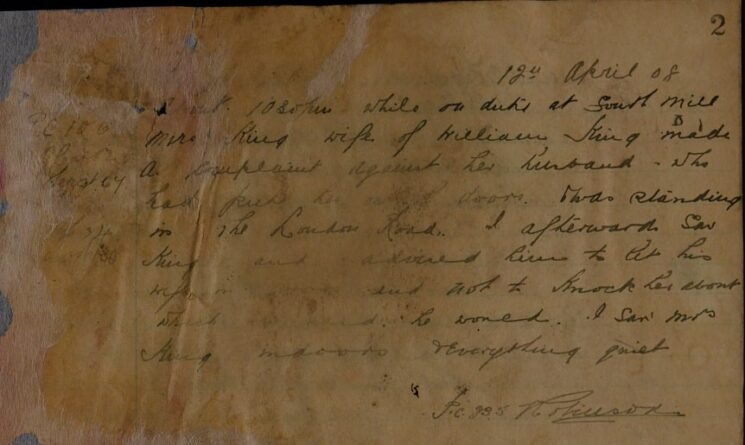 2
12th April 08
10 30 pm while on duty at South Mill
Mrs King wife of William King made
A complaint against her husband - who
had her of doors. & was standing
in the London Road. I afterwards Saw
King and advised him to let his
wife in and not to Knock her about
which he would. I Saw Mrs
King indoors & Everything quiet
P.C. 225 Robinson